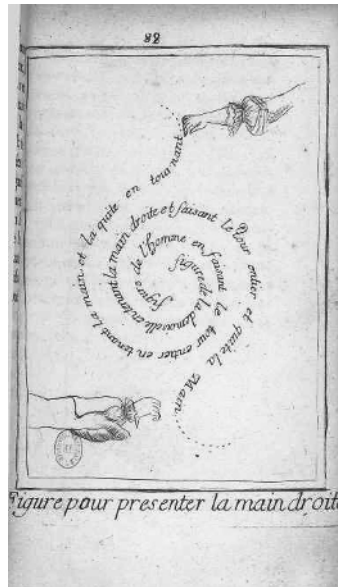 88
figure de l'homme en faisant le tour entier en tenant la main et la quite en tournant
figure de la demoiselle en tenant la main droite et faisant le Tour entier et quite la Main
Figure pour presenter la main droite